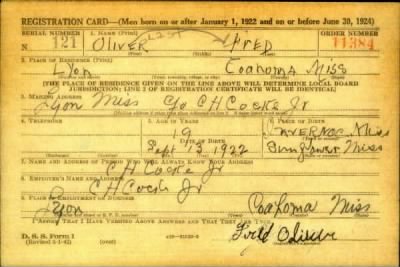 REGISTRATION CARD—(Men born on or after January 1, 1922 and on or before June 30, 1924)
SERIAL NUMBER 1. NAME (Print) ORDER NUMBER
121 OLIVER FRED 11384
2. PLACE OF RESIDENCE (Print)
Lyon Coahoma Miss
(Town, township, village, or city) (County) (State)
[THE PLACE OF RESIDENCE GIVEN ON THE LINE ABOVE WILL DETERMINE LOCAL BOARD
JURISDICTION; LINE 2 OF REGISTRATION CERTIFICATE WILL BE IDENTICAL]
3. MAILING ADDRESS
Lyon Miss c/o C H Cocke Jr
4. TELEPHONE 5. AGE IN YEARS 6. PLACE OF BIRTH
19 Inverness Miss
DATE OF BIRTH
Sept 13 1922 Sunflower Miss
7. NAME AND ADDRESS OF PERSON WHO WILL ALWAYS KNOW YOUR ADDRESS
C H Cocke Jr
8. EMPLOYER'S NAME AND ADDRESS
C H Cocke Jr
9. PLACE OF EMPLOYMENT OR BUSINESS
Lyon Coahoma Miss
I AFFIRM THAT I HAVE VERIFIED ABOVE ANSWERS AND THAT THEY ARE TRUE.
D. S. S. Form 1
Fred Oliver